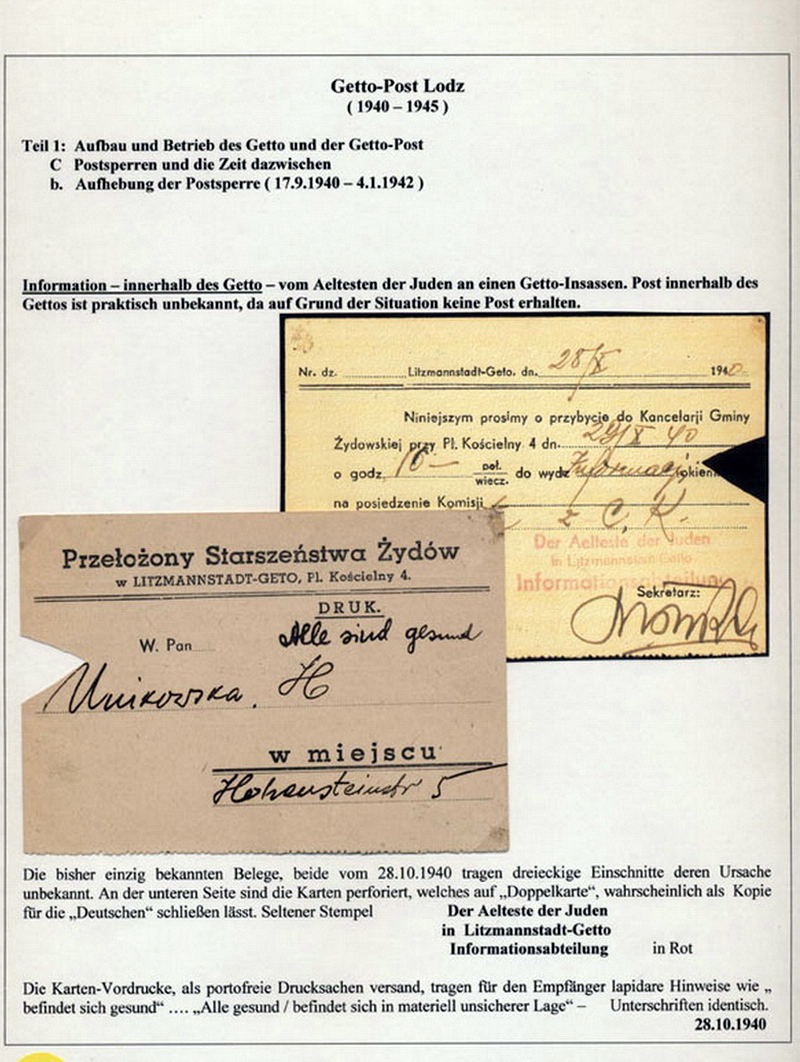 Getto-Post Lodz
( 1940 – 1945 )
Teil 1: Aufbau und Betrieb des Getto und der Getto-Post
C Postsperren und die Zeit dazwischen
b. Aufhebung der Postsperre ( 17.9.1940 – 4.1.1942 )
Information – innerhalb des Getto – vom Aeltesten der Juden an einen Getto-Insassen. Post innerhalb des
Gettos ist praktisch unbekannt, da auf Grund der Situation keine Post erhalten.
Nr. dz. Litzmannstadt-Geto, dn. 28/X 1940.
Niniejszym prosimy o przybycie do Kancelarji Gminy
Żydowskiej przy Pl. Kościelny 4 dn. 29/X 40
o godz. 10 – poł. wiecz. do wydz. Informacji
na posiedzenie Komisji z C. K.
Der Aelteste der Juden
in Litzmannstadt-Getto
Informationsabteilung
Sekretarz:
Przełożony Starszeństwa Żydów
w LITZMANNSTADT-GETO, Pl. Kościelny 4.
DRUK.
Alle sind gesund
W. Pan
Unikowska. H
w miejscu
Hohensteinstr 5
Die bisher einzig bekannten Belege, beide vom 28.10.1940 tragen dreieckige Einschnitte deren Ursache
unbekannt. An der unteren Seite sind die Karten perforiert, welches auf „Doppelkarte“, wahrscheinlich als Kopie
für die „Deutschen“ schließen lässt. Seltener Stempel Der Aelteste der Juden
in Litzmannstadt-Getto
Informationsabteilung in Rot
Die Karten-Vordrucke, als portofreie Drucksachen versand, tragen für den Empfänger lapidare Hinweise wie „
befindet sich gesund“ …. „Alle gesund / befindet sich in materiell unsicherer Lage“ – Unterschriften identisch.
28.10.1940